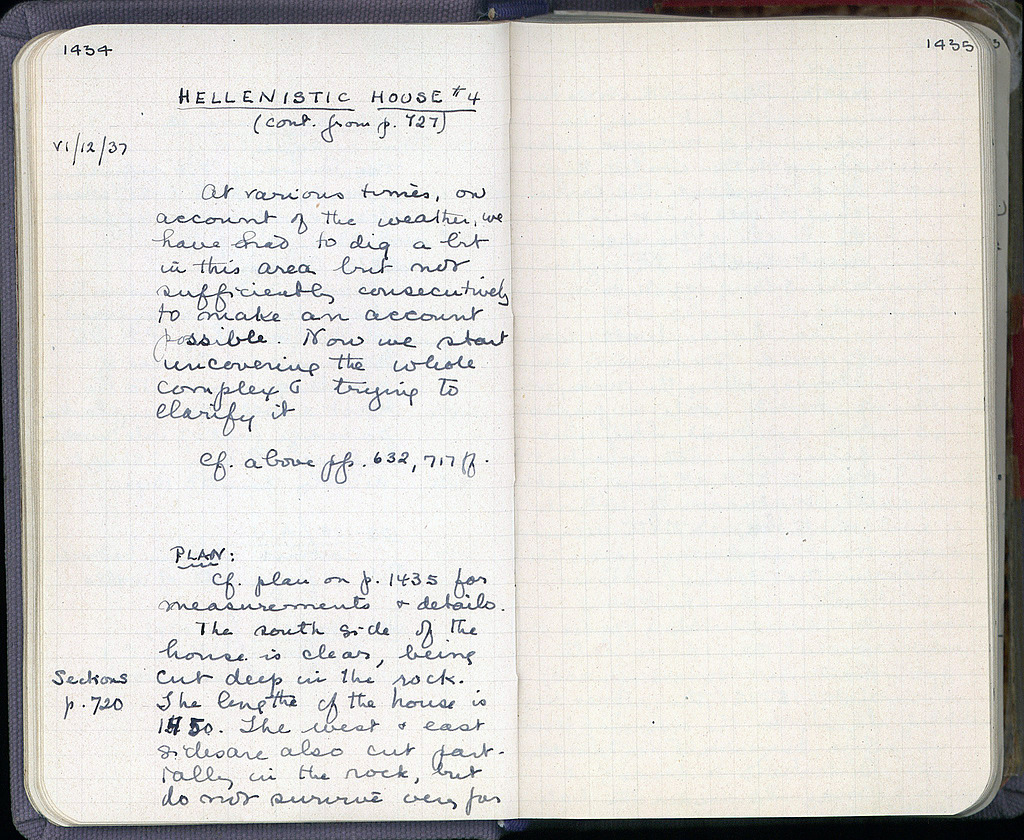 1434
HELLENISTIC HOUSE #4
(cont. from p. 727)
VI/12/37
At various times, on
account of the weather, we
have had to dig a bit
in this area but not
sufficiently consecutively
to make an account
possible. Now we start
uncovering the whole
complex & trying to
clarify it
Cf. above pp. 632, 717 ff.
PLAN:
Cf. plan on p. 1435 for
measurements & details.
The south side of the
house is clear, being
Sections
p. 720
cut deep in the rock.
The length of the house is
. The west & east
sides are also cut part-
ially in the rock, but
do not survive very far
1435